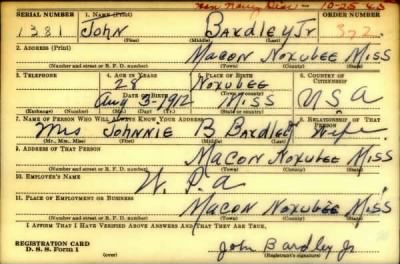 10-25 43
SERIAL NUMBER 1. NAME (Print) ORDER NUMBER
1381 John Bardley Jr 372
(First) (Middle) (Last)
2. ADDRESS (Print)
Macon Noxubee Miss
(Number and street or R. F. D. number) (Town) (County) (State)
3. TELEPHONE 4. AGE IN YEARS 5. PLACE OF BIRTH 6. COUNTRY OF CITIZENSHIP
28 Noxubee
DATE OF BIRTH (Town or county)
Aug 3-1912 Miss U.S.A
(Exchange) (Number) (Mo.) (Day) (Yr.) (State or country)
7. NAME OF PERSON WHO WILL ALWAYS KNOW YOUR ADDRESS 8. RELATIONSHIP OF THAT PERSON
Mrs Johnnie B Bardley Wife
(Mr., Mrs., Miss) (First) (Middle) (Last)
9. ADDRESS OF THAT PERSON
Macon Noxubee Miss
(Number and street or R. F. D. number) (Town) (County) (State)
10. EMPLOYER'S NAME
W. P. a
11. PLACE OF EMPLOYMENT OR BUSINESS
Macon Noxubee Miss
(Number and street or R. F. D. number) (Town) (County) (State)
I AFFIRM THAT I HAVE VERIFIED ABOVE ANSWERS AND THAT THEY ARE TRUE.
REGISTRATION CARD
D. S. S. Form 1 John Bardley Jr
(Registrant's signature)